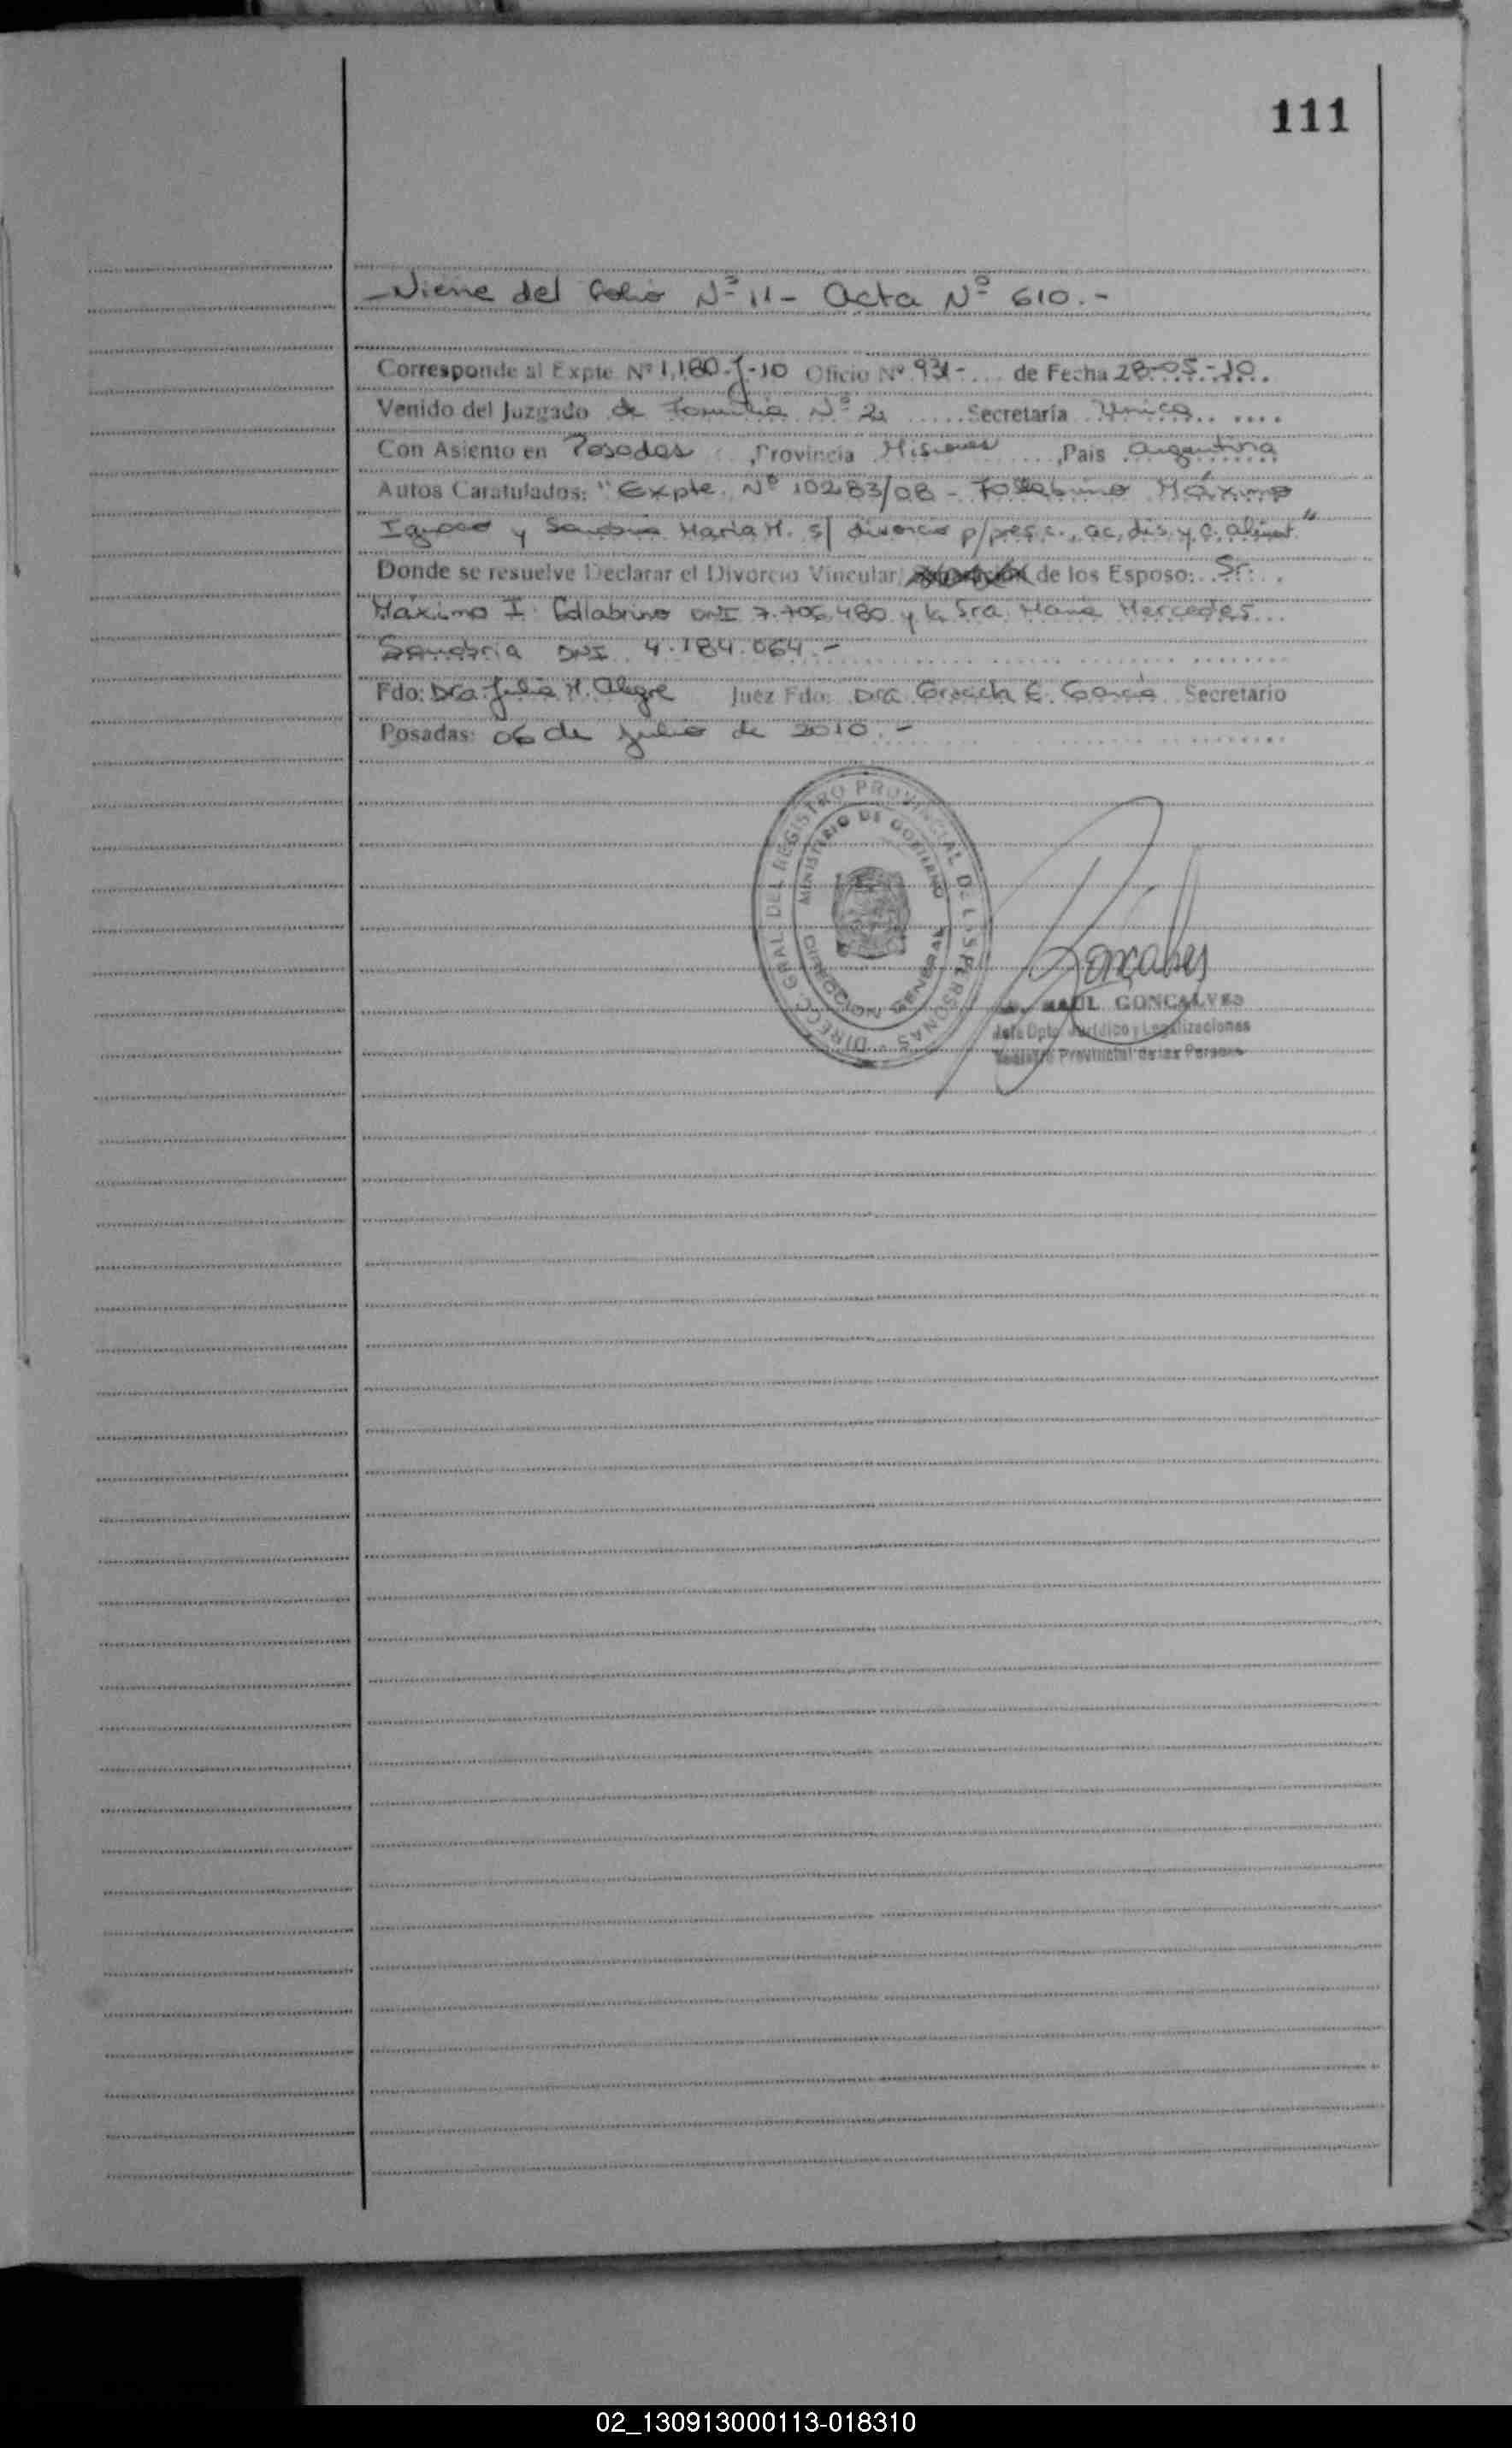 111
-Viene del Folio Nº 11- Acta Nº 610.-
Corresponde al Expte. Nº 1.180-J-10 Oficio Nº 931-... de Fecha 28-05-10.
Venido del Juzgado de Familia Nº 2 ..... Secretaría Unica.. ....
Con Asiento en Posadas ,Provincia Misiones ....,Pais Argentina
Autos Caratulados: "Expte. Nº 10283/08 - Máximo
Ignacio y Sanabria Maria M. s/ divorcio p/pres.c., ac, dis. y c. aliment."
Donde se resuelve Declarar el Divorcio Vincular/ de los Esposo: Sr:
Máximo I. DNI 7.706.480 y la Sra. Maria Mercedes
Sanabria DNI 4.184.064.-
Fdo: Dra. Julia M. Alegre Juez Fdo: Dra. Graciela E. García Secretario
Posadas: 06 de Julio de 2010.-
DIRECC. GRAL. DEL REGISTRO PROVINCIAL DE LAS PERSONAS
MINISTERIO DE GOBIERNO
DIRECCION GENERAL
Goncalves
RAUL GONCALVES
Jefe Dpto. Jurídico y Legalizaciones
Registro Provincial de las Personas
02_130913000113-018310